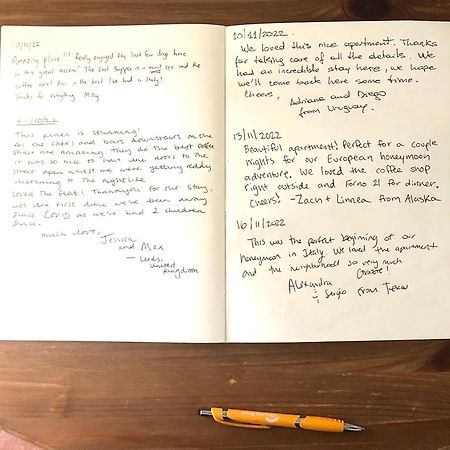 Amazing place!!! Really enjoyed the last few days here
in this great accom! The Last Supper is a must see and the
coffee next door is the best I've had in Italy!
Thanks for everything Milly
This place is stunning!
All the cafes and bars downstairs on the
street are amazing. They do the best coffee
it was so nice to have the doors to the
street open whilst we were getting ready
listening to the nightlife.
Loved the flat! Thankyou for our stay,
was the first time we've been away
since COVID as we've had 2 children
since.
much love,
Jessica
and Max
- Leeds,
United
Kingdom
10/11/2022
We loved this nice apartment. Thanks
for taking care of all the details. We
had an incredible stay here, we hope
we'll come back here some time.
Cheers,
Adriana and Diego
from Uruguay.
13/11/2022
Beautiful apartment! Perfect for a couple
nights for our European honeymoon
adventure. We loved the coffee shop
right outside and Forno 21 for dinner.
Cheers! -Zach + Linnea from Alaska
16/11/2022
This was the perfect beginning of our
honeymoon in Italy. We loved the apartment
and the neighborhood so very much.
Grazie!
Alexandra
& Sergio from